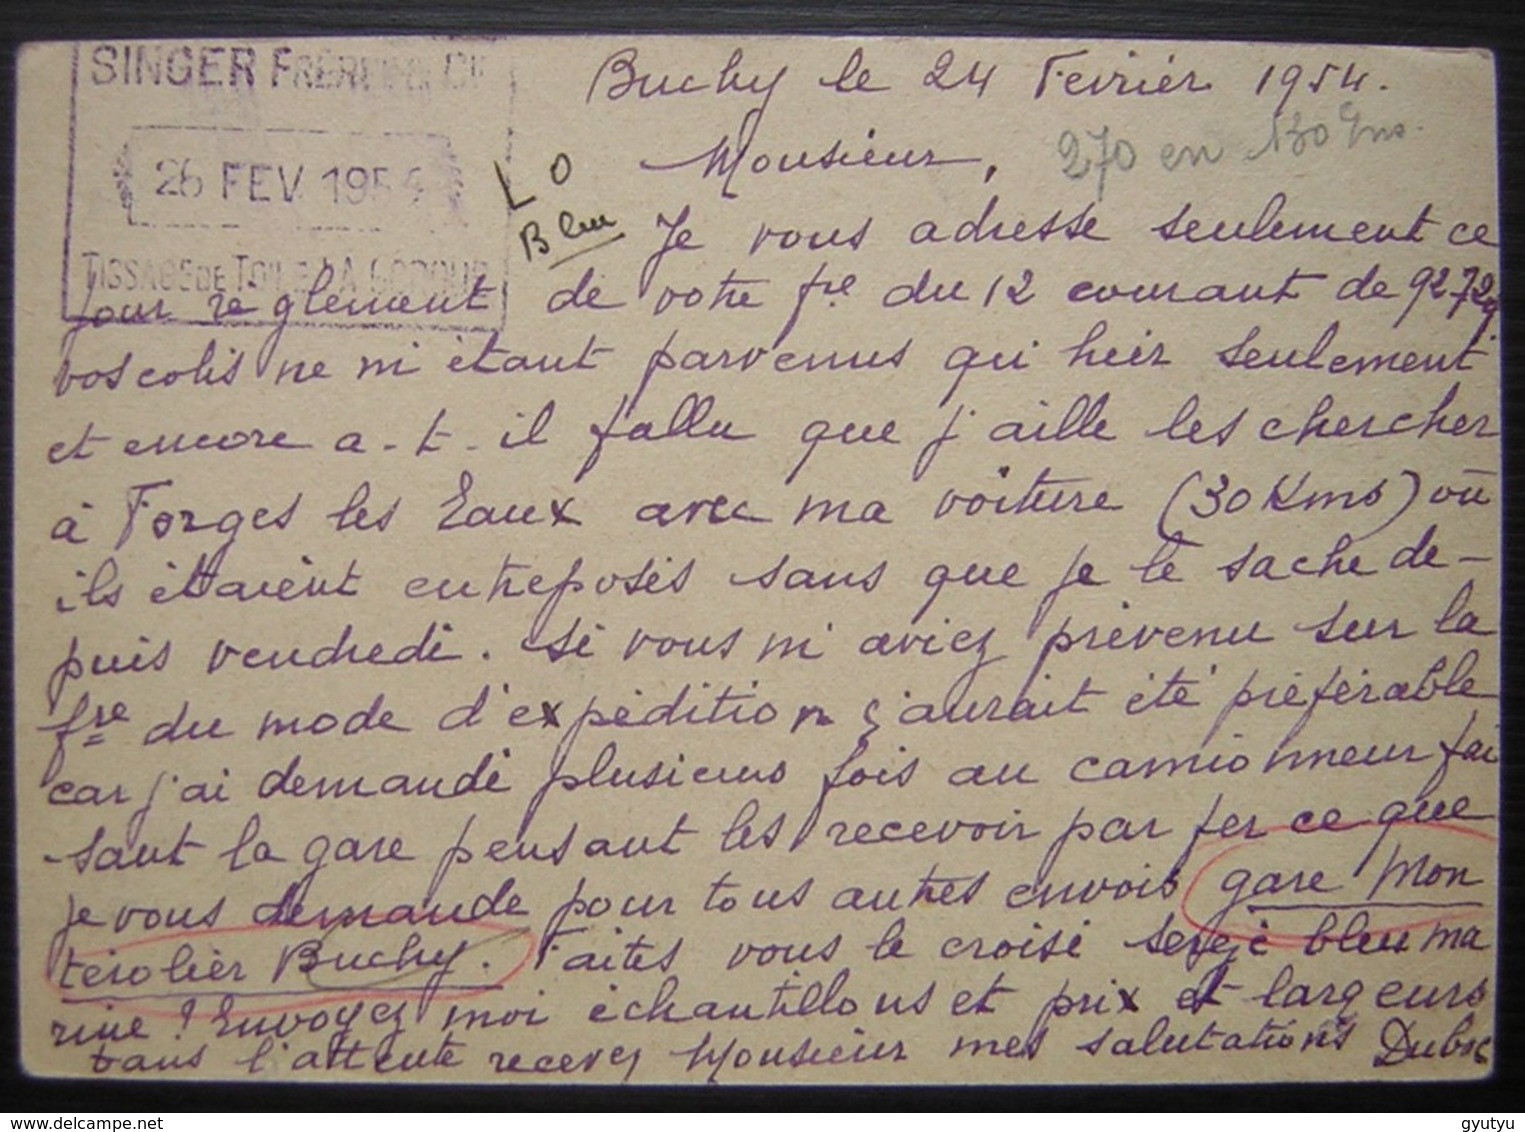 SINGER FRÈRE
26 FEV 1954
TISSAGE DE TOILE LA
Buchy le 24 Fevrièr 1954.
270 en 130
Monsieur,
L O
Bleu
Je vous adresse seulement ce
jour règlement de votre fre du 12 courant de 92729
vos colis ne m'étant parvenus qu'hier seulement
et encore a-t-il fallu que j'aille les chercher
à Forges les Eaux avec ma voiture (30 Kms) où
ils étaient entreposés sans que je le sache de-
puis vendredi. Si vous m'aviez prévenu sur la
fre du mode d'expédition ç'aurait été préférable
car j'ai demandé plusieurs fois au camionneur fai
sant la gare pensant les recevoir par fer ce que
je vous demande pour tous autres envois gare Mon
térolier Buchy. Faites vous le croisé sergé bleu ma
rine? Envoyez moi échantillons et prix et largeurs
dans l'attente recevez Monsieur mes salutations Duboc
gyutyu